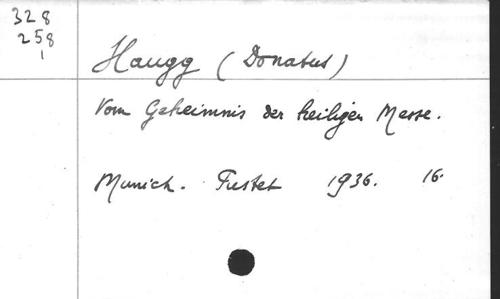 328
258
1
Haugg (Donatus)
Vom Geheimnis der heiligen Messe.
Munich. Pustet 1936. 16.